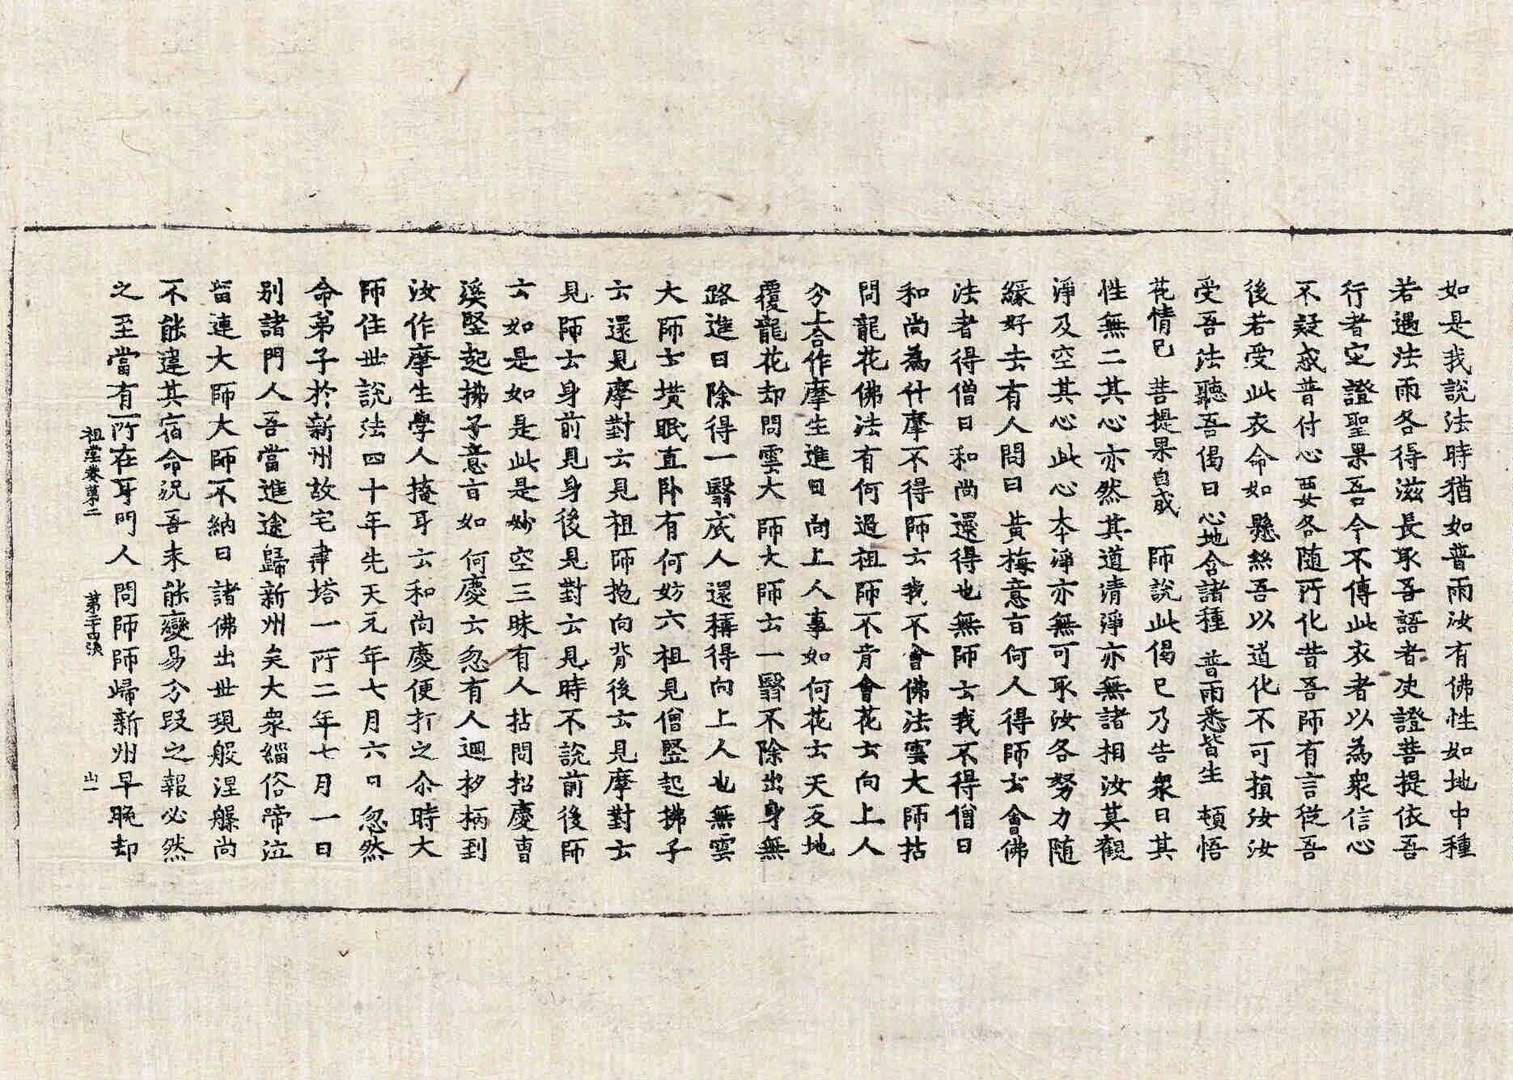 如是我說法時猶如普雨汝有佛性如地中種
若遇法雨各得滋長取吾語者決證菩提依吾
行者定證聖果吾今不傳此衣者以為衆信心
不疑惑普付心要各随所化昔吾師有言從吾
後若受此衣命如懸絲吾以道化不可損汝汝
受吾法聽吾偈曰心地含諸種　普雨悉皆生　頓悟
花情已　菩提果自成　師說此偈已乃告衆曰其
性無二其心亦然其道清淨亦無諸相汝莫觀
淨及空其心此心本淨亦無可取汝各努力随
緣好去有人問曰黃梅意旨何人得師云會佛
法者得僧曰和尚還得也無師云我不得僧曰
和尚為什摩不得師云我不會佛法雲大師拈
問龍花佛法有何過祖師不肯會花云向上人
分上合作摩生進曰向上人事如何花云天反地
覆龍花却問雲大師大師云一翳不除出身無
路進曰除得一翳底人還稱得向上人也無雲
大師云撗眠直卧有何妨六祖見僧竪起拂子
云還見摩對云見祖師抛向背後云見摩對云
見師云身前見身後見對云見時不說前後師
云如是如是此是妙空三昧有人拈問招慶曹
溪竪起拂子意旨如何慶云忽有人迴杪柄到
汝作摩生學人掩耳云和尚慶便打之尒時大
師住世說法四十年先天元年七月六日忽然
命弟子於新州故宅建塔一所二年七月一日
别諸門人吾當進途歸新州矣大衆緇俗啼泣
留連大師大師不納曰諸佛出世現般涅槃尚
不能違其宿命況吾未能變易分段之報必然
之至當有所在耳門人問師師歸新州早晚却
祖堂卷第二　第二十四張　山一